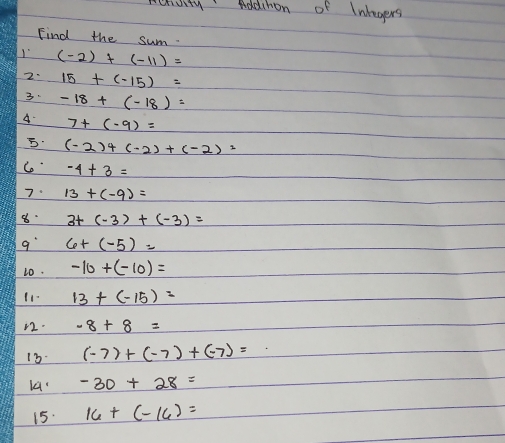 Activity Addition of Integers
Find the sum.
1. (-2) + (-11) =
2. 15 + (-15) =
3. -18 + (-18) =
4. 7+ (-9) =
5. (-2)+ (-2) + (-2) =
6. -4 + 3 =
7. 13 + (-9) =
8. 3+ (-3) + (-3) =
9. 6+ (-5) =
10. -10 + (-10) =
11. 13 + (-15) =
12. -8 + 8 =
13. (-7) + (-7) + (-7) =
14. -30 + 28 =
15. 16 + (-16) =